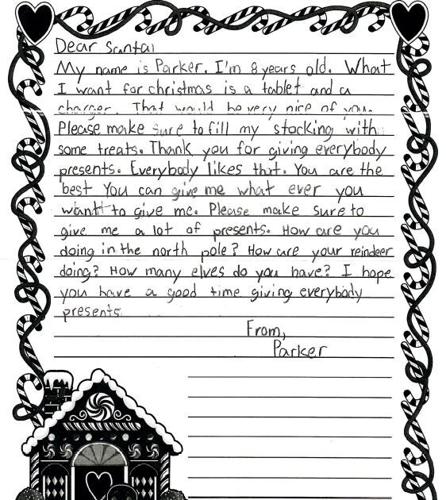 Dear Santa,
My name is Parker. I'm 8 years old. What
I want for christmas is a tablet and a
charger. That would be very nice of you.
Please make sure to fill my stocking with
some treats. Thank you for giving everybody
presents. Everybody likes that. You are the
best You can give me what ever you
want to give me. Please make sure to
give me a lot of presents. How are you
doing in the north pole? How are your reindeer
doing? How many elves do you have? I hope
you have a good time giving everybody
presents.
From,
Parker